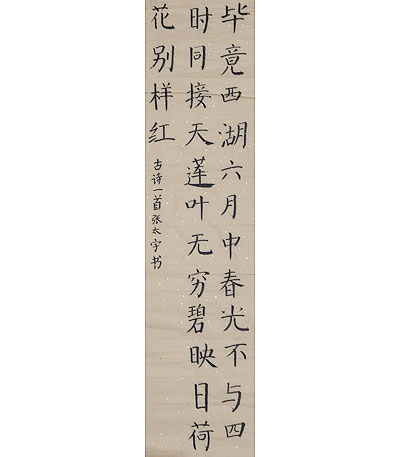 毕竟西湖六月中春光不与四
时同接天莲叶无穷碧映日荷
花别样红
古诗一首张太宇书